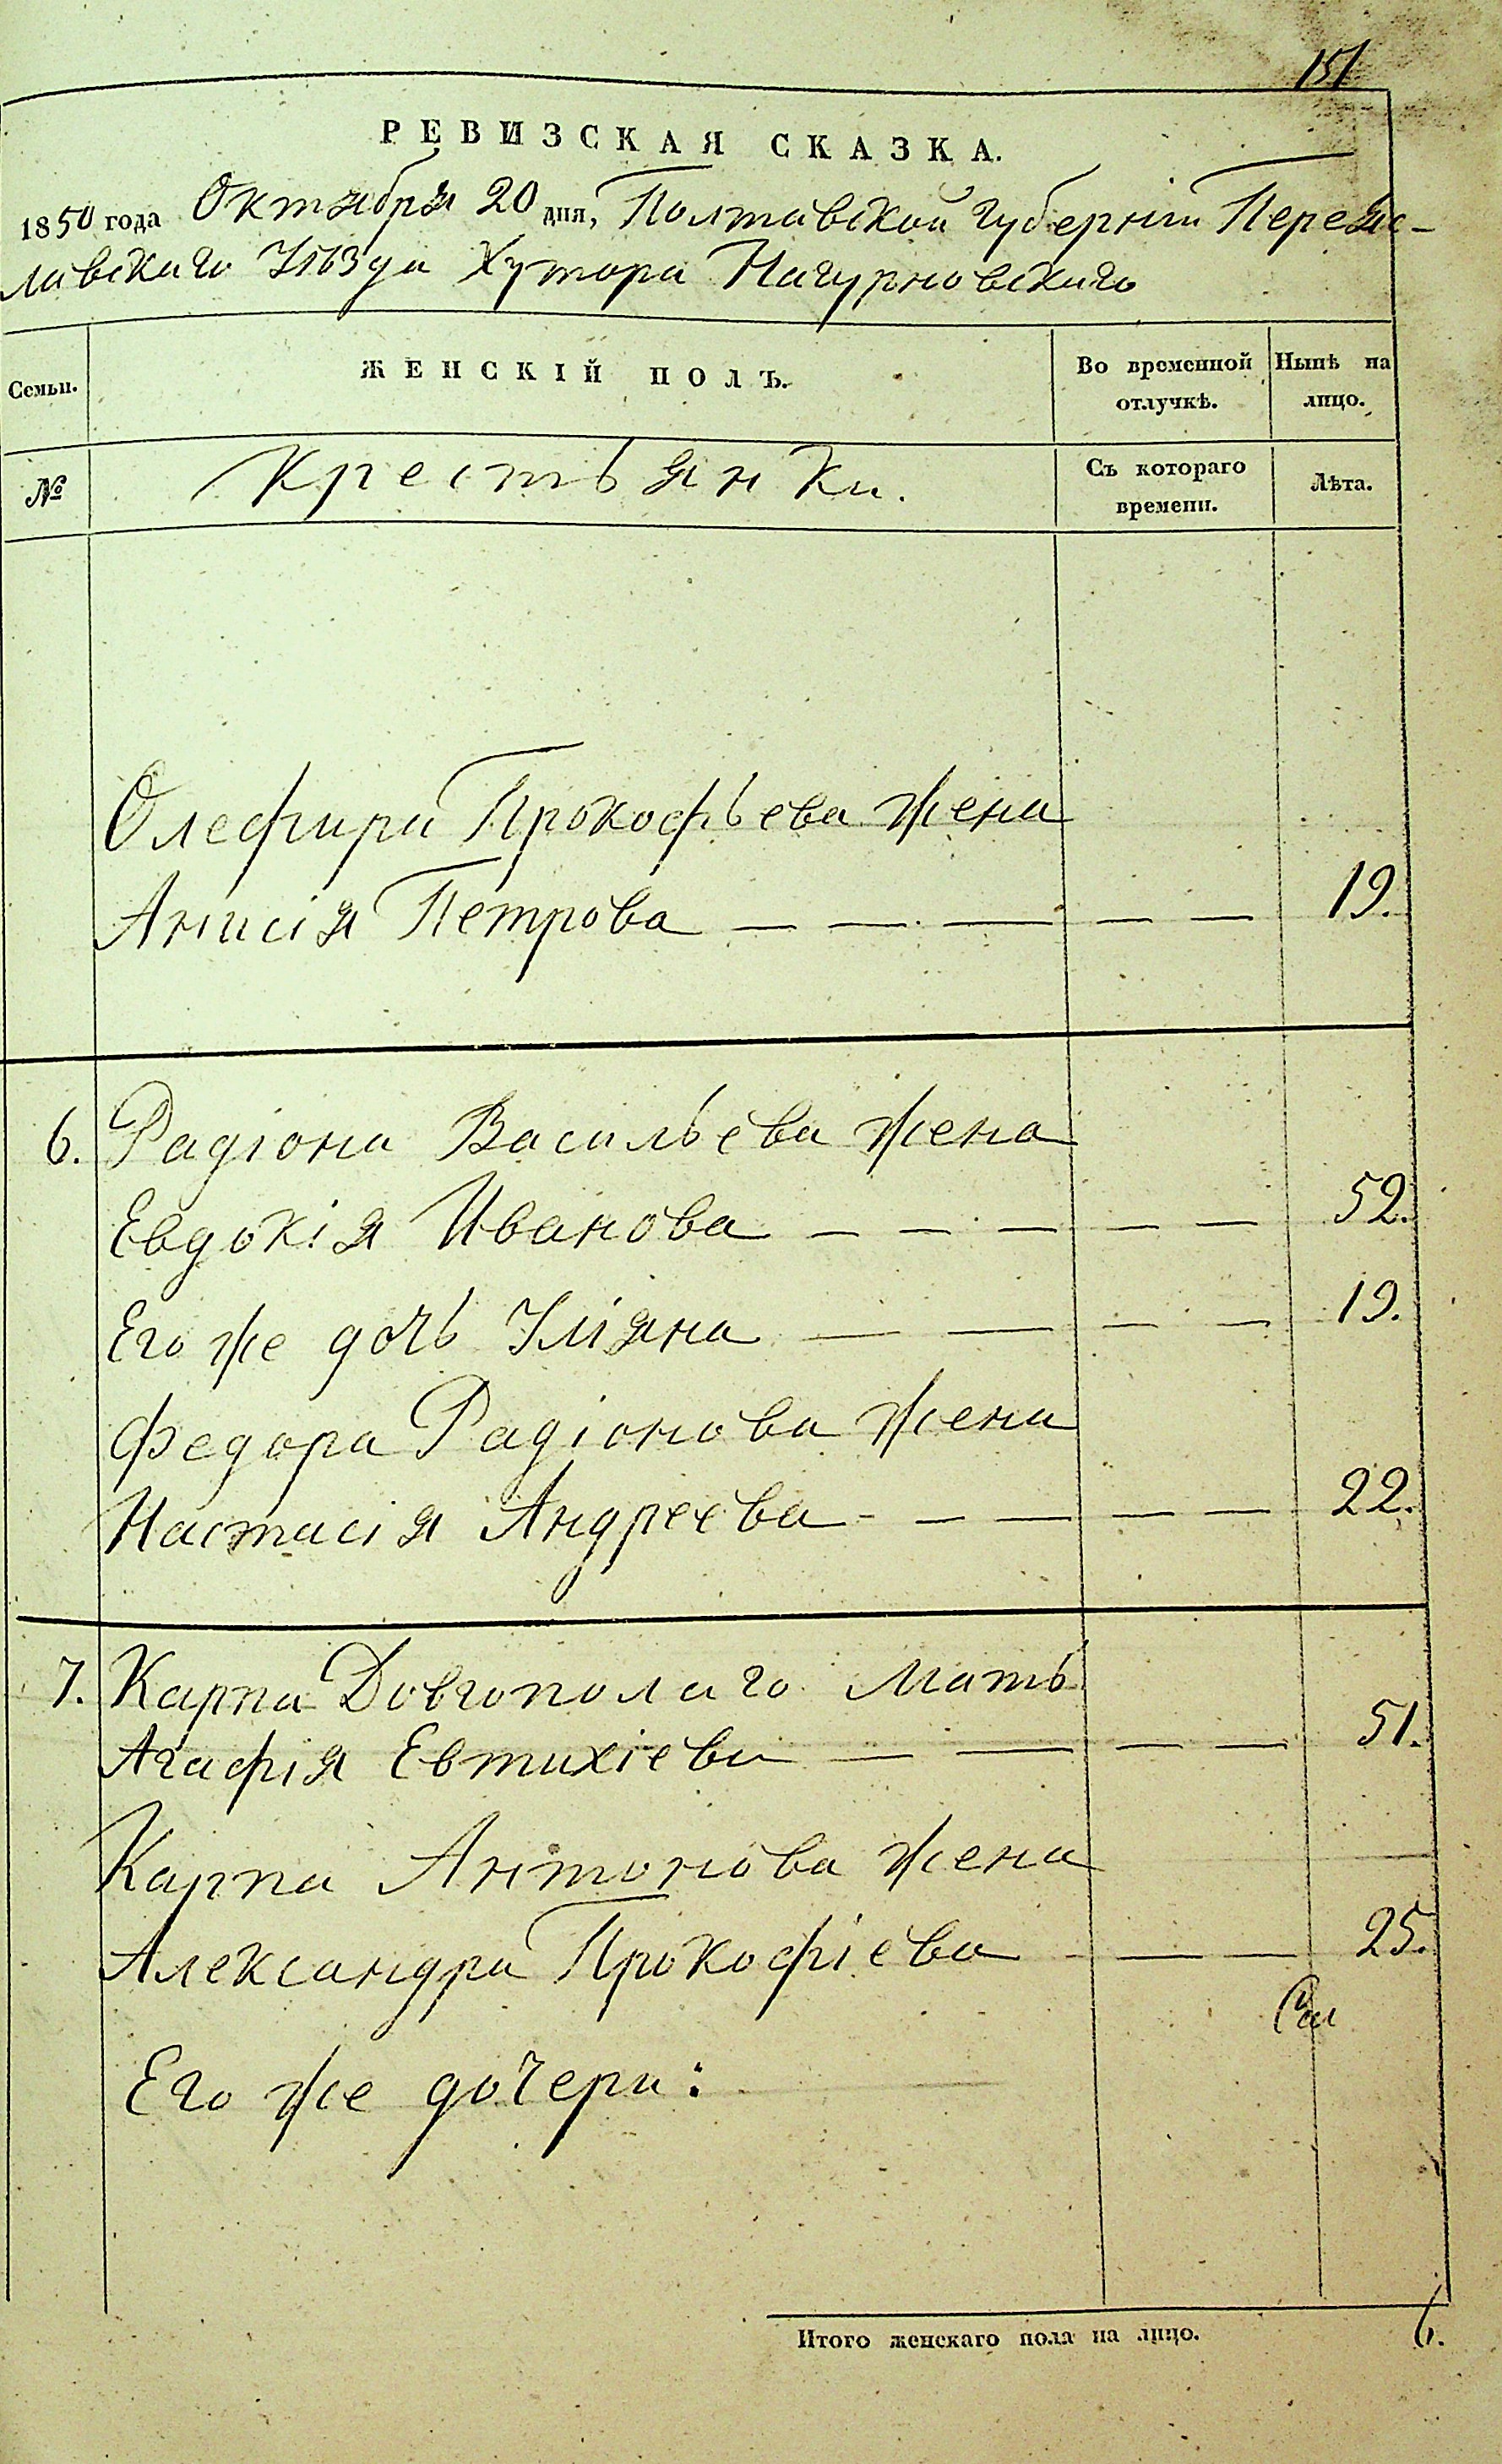 151
РЕВИЗСКАЯ СКАЗКА.
1850 года Октября 20 дня, Полтавской губернiи Переяс-
лавскаго Уѣзда Хутора Нагурновскаго
Семьи. ЖЕНСКІЙ ПОЛЪ. Во временной отлучкѣ. Нынѣ на лицо.
№ Крестьянки. Съ котораго времени. Лѣта.
Олефира Прокофьева жена
Анисія Петрова — — — — — 19.
6. Радіона Васильева жена
Евдокія Иванова — — — — — 52.
Его же дочь Уліяна — — — — 19.
Федора Радіонова жена
Настасія Андреева - — — — — 22.
7. Карпа Довгополаго Мать
Агафія Евтихіева — — — — 51.
Карпа Антонова жена
Александра Прокофіева - — — 25.
Его же дочери:
Итого женскаго пола на лицо. 6.